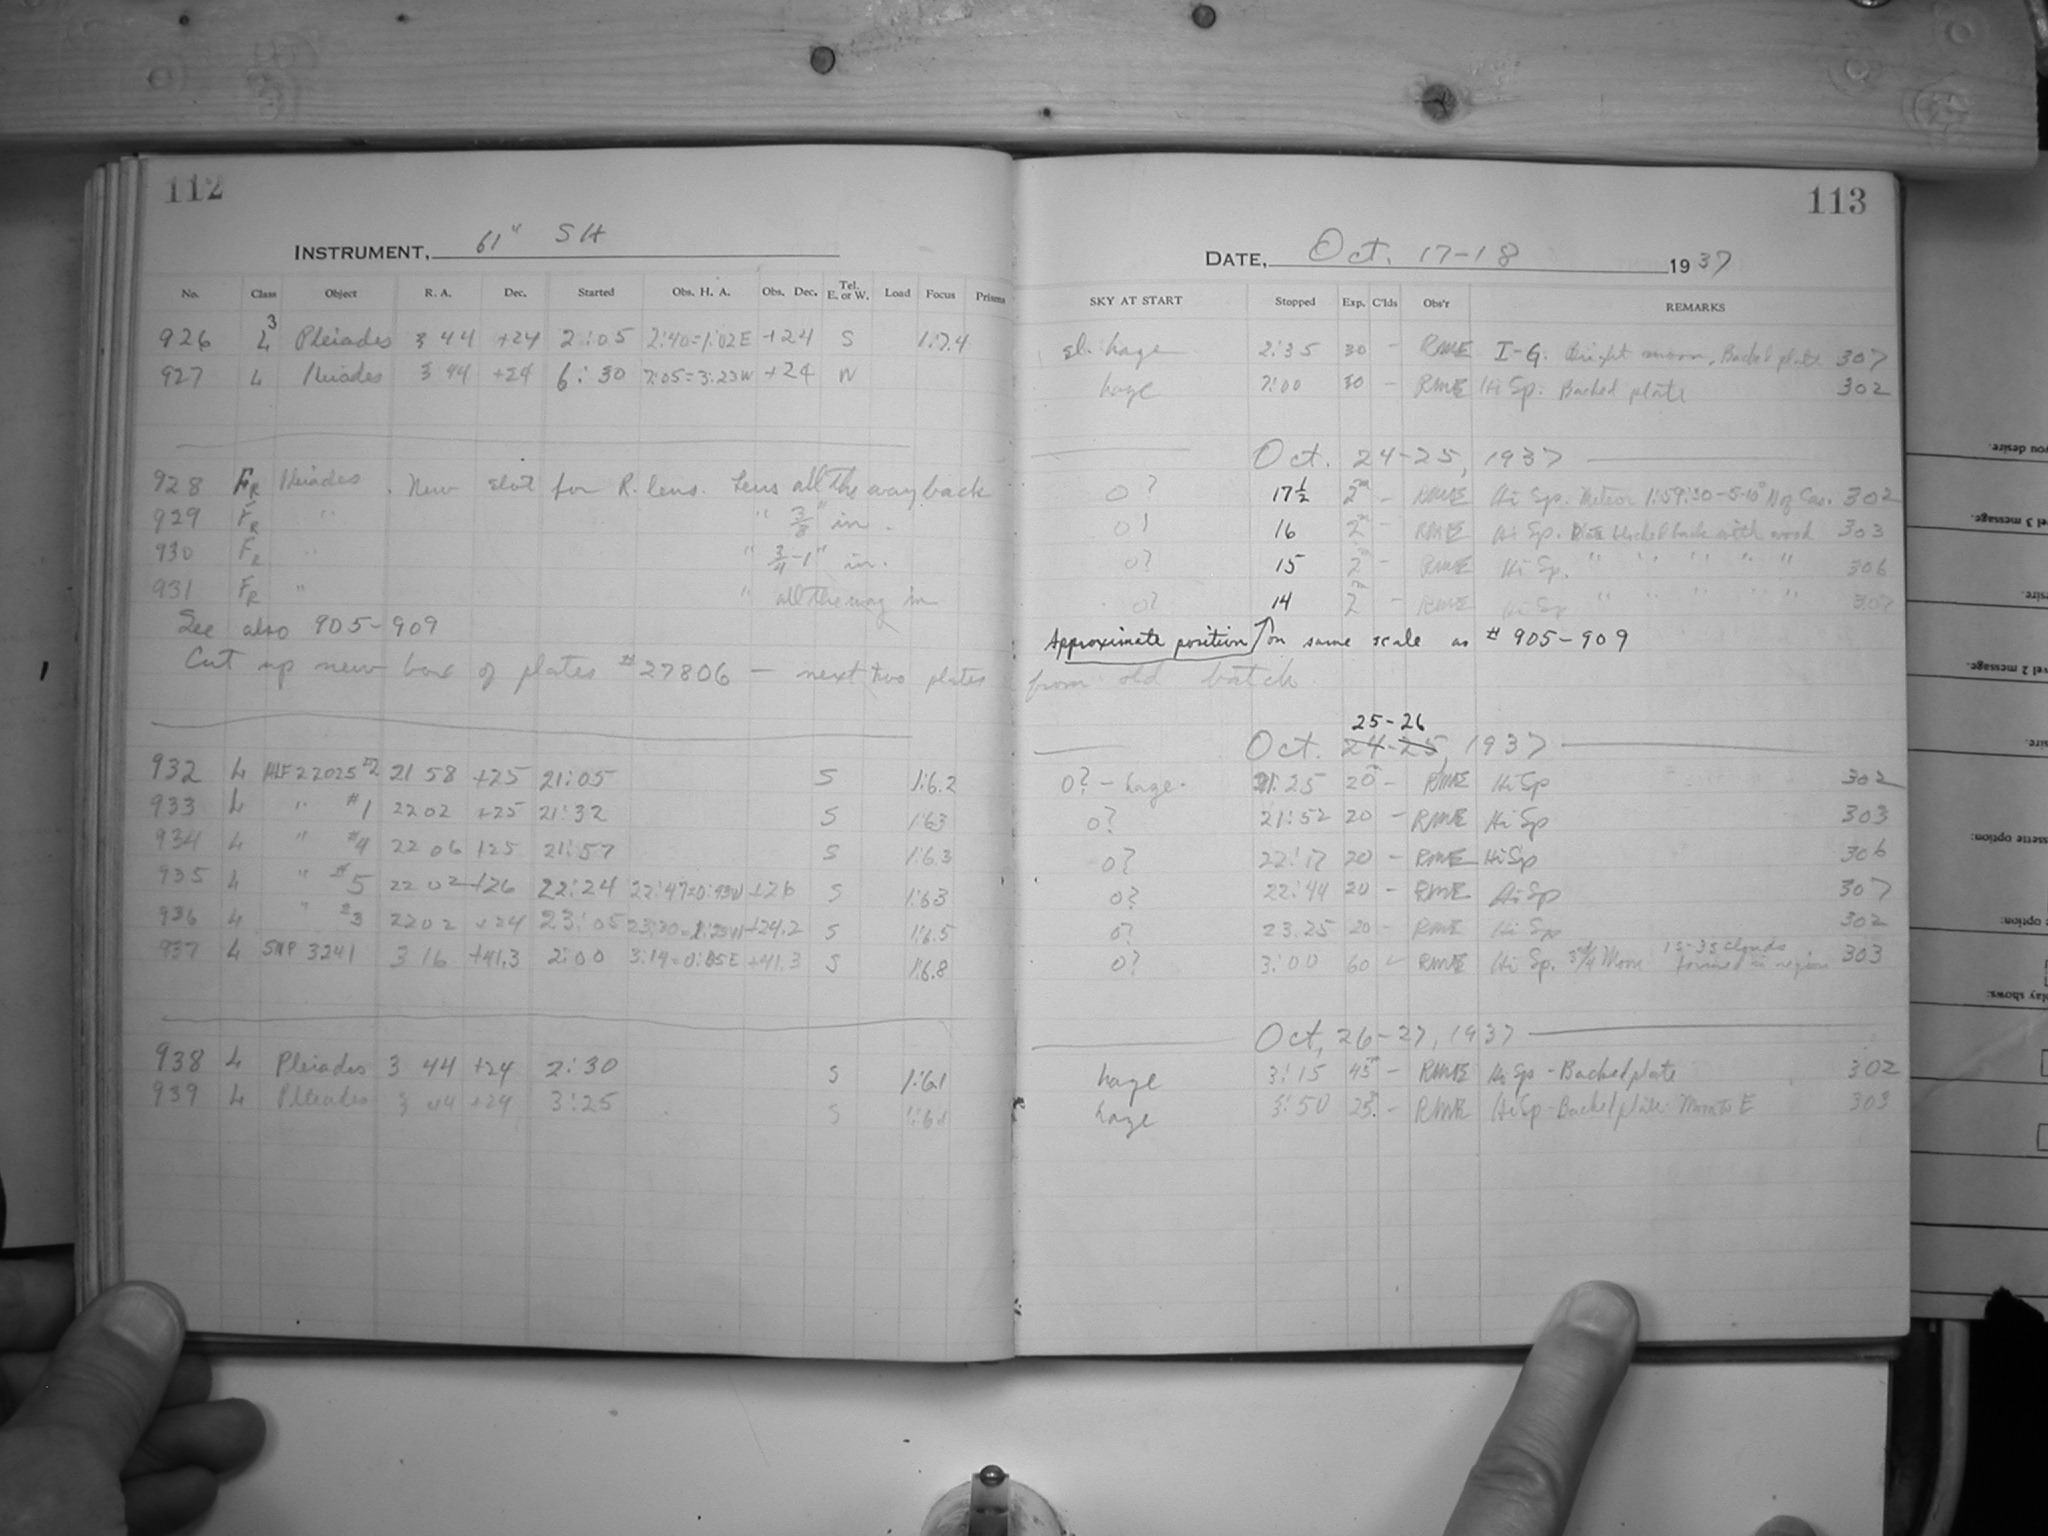 112
INSTRUMENT, 61" SH
No. Class Object R. A. Dec. Started Obs. H. A. Obs. Dec. Tel. E. or W. Load Focus Prisms
926 L 3 Pleiades 3 44 +24 2:05 2:40=1:02E +24 S 1:7.4
927 L Pleiades 3 44 +24 6:30 7:05=3:23W +24 N
928 FR Pleiades . New slot for R. lens. Lens all the way back
929 FR " " 3/8" in.
930 FR " " 3/4-1" in.
931 FR " " all the way in
See also 905-909
Cut up new box of plates #27806 — next two plates
932 L HLF 22025 #2 21 58 +25 21:05 S 1:6.2
933 L " #1 22 02 +25 21:32 S 1:63
934 L " #4 22 06 +25 21:57 S 1:6.3
935 L " #5 22 02 +26 22:24 +26 S 1:63
936 L " #3 22 02 +24 23:05 +24.2 S 1:6.5
937 L 3241 3 16 +41.3 2:00 3:14=0:05E +41.3 S 1:6.8
938 L Pleiades 3 44 +24 2:30 S 1:61
939 L Pleiades 3 44 +24 3:25 S
113
DATE, Oct. 17-18 1937
SKY AT START Stopped Exp. C'lds Obs'r REMARKS
sl. haze 2:35 30 - RME I-G. Bright moon, Backed plate 307
haze 7:00 30 - RME Hi Sp. Backed plate 302
Oct. 24-25, 1937
0? 17½ 2m - RME Hi Sp. Meteor 1:59:30 - 5-10° N of Cas. 302
0! 16 2m - RME Hi Sp. Plate blocked back with wood 303
0? 15 2m - RME Hi Sp. " " " " " 306
0? 14 2m - RME Hi Sp " " " " " 307
Approximate position on same scale as # 905-909
from old batch.
25-26
Oct. 24-25, 1937
0? - haze. 21:25 20m - RME Hi Sp 302
0? 21:52 20 - RME Hi Sp 303
0? 22:17 20 - RME Hi Sp 306
0? 22:44 20 - RME Hi Sp 307
0? 23:25 20 - RME Hi Sp 302
0? 3:00 60 RME Hi Sp. 3/4 Moon 15-35 clouds formed in region 303
Oct, 26-27, 1937
haze 3:15 45m - RME Hi Sp - Backed plate 302
haze 3:50 25m - RME Hi Sp - Backed plate Moon to E 303
you desire.
el 3 message.
sire.
vel 2 message.
sire.
ssette option:
option:
play shows: